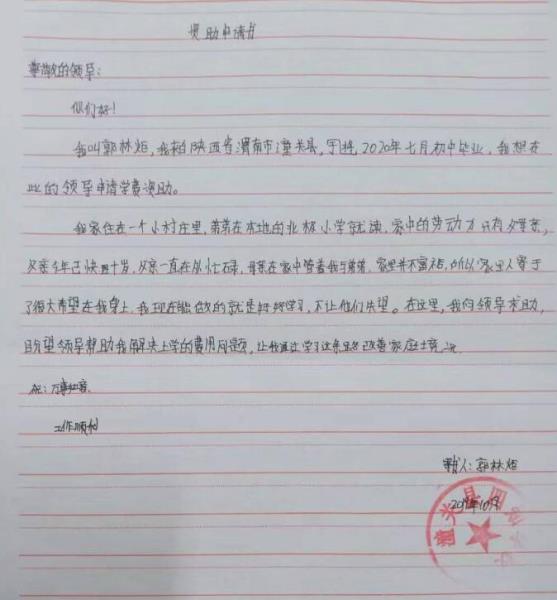 资助申请书
尊敬的领导:
你们好!
我叫郭林烜,我来自陕西省渭南市潼关县,于2020年七月初中毕业,我想在
此向领导申请学费资助。
我家住在一个小村庄里,弟弟在本地的北极小学就读,家中的劳动力只有父亲,
父亲今年已快四十岁,父亲一直在外忙碌,母亲在家中管着我与弟弟,家里并不富裕,所以家里人寄于
了很大希望在我身上,我现在能做的就是好好学习,不让他们失望。在这里,我向领导求助,
盼望领导帮助我解决上学的费用问题,让我通过学习这条路改善家庭情况
祝:万事如意
工作顺利
郭林烜
10月
潼关县